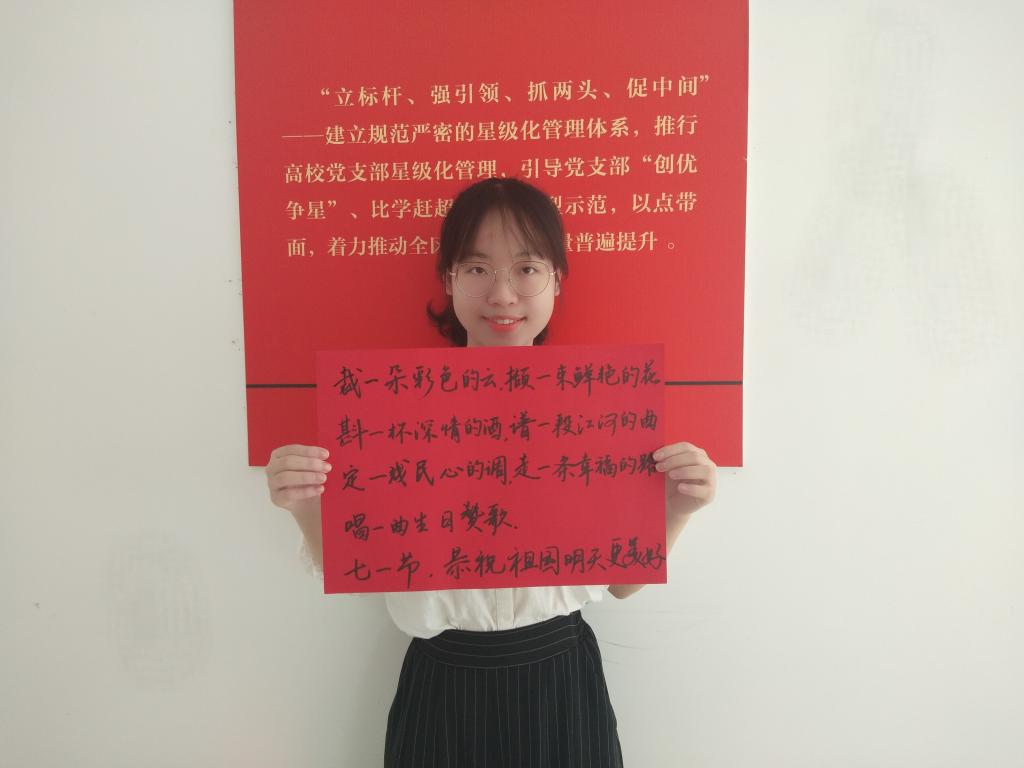 “立标杆、强引领、抓两头、促中间”
——建立规范严密的星级化管理体系，推行
高校党支部星级化管理，引导党支部“创优
争星”、比学赶超 示范，以点带
面，着力推动全 量普遍提升。
裁一朵彩色的云,撷一束鲜艳的花
斟一杯深情的酒,谱一段江河的曲
定一线民心的调,走一条幸福的路
唱一曲生日赞歌.
七一节,恭祝祖国明天更美好